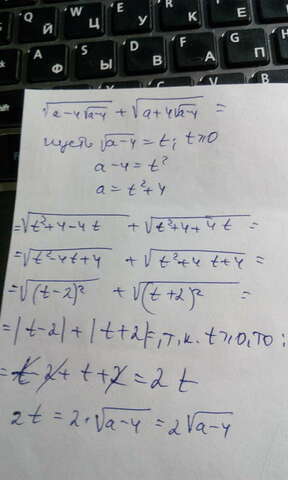 Q Й Ц W У E К R Е
A Ы S В D А F П G
√a-4√a-4 + √a+4√a-4 =
пусть √a-4 = t; t≥0
a-4=t²
a=t²+4
=√t²+4-4t + √t²+4+4t =
=√t²-4t+4 + √t²+4t+4 =
=√(t-2)² + √(t+2)² =
=|t-2|+|t+2|=, т.к. t≥0, то:
= t-2+t+2=2t
2t=2·√a-4=2√a-4